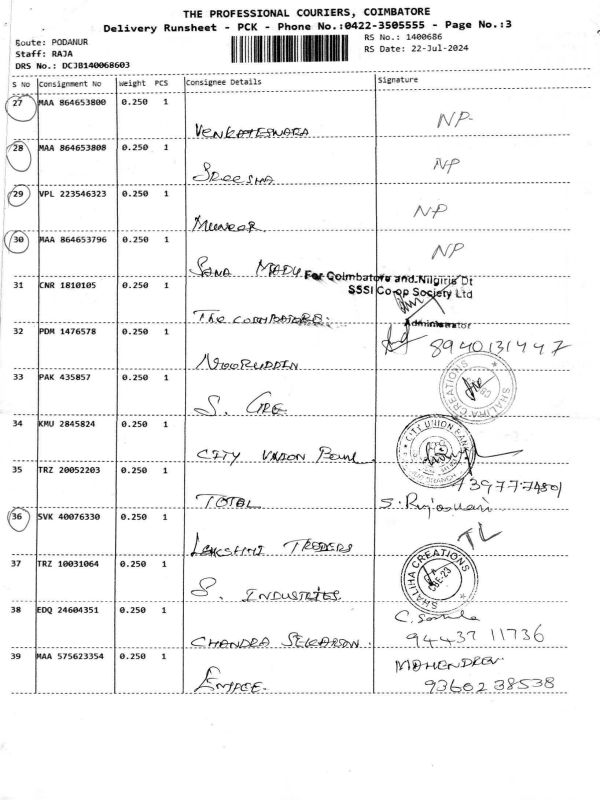 THE PROFESSIONAL COURIERS, COIMBATORE
Delivery Runsheet - PCK - Phone No.:0422-3505555 - Page No.:3
Route: PODANUR
Staff: RAJA
DRS No.: DCJB140068603
RS No.: 1400686
RS Date: 22-Jul-2024
S No Consignment No Weight PCS Consignee Details Signature
27 MAA 864653800 0.250 1 NP
VENKATESWARA
28 MAA 864653808 0.250 1 NP
SREESHA
29 VPL 223546323 0.250 1 NP
Muneer
30 MAA 864653796 0.250 1 NP
SANA MADU
For Coimbatore and Nilgiris Dt
SSSI Co-op Society Ltd
Administrator
31 CNR 1810105 0.250 1
The COIMBATORE
32 PDM 1476578 0.250 1 8940131447
NOORUDDIN
33 PAK 435857 0.250 1
SHALIHA CREATIONS
S. GRE
34 KMU 2845824 0.250 1
CITY UNION BANK
CITY UNION Bank
35 TRZ 20052203 0.250 1
TOTAL
36 SVK 40076330 0.250 1 TL
LAKSHMI TRADERS
37 TRZ 10031064 0.250 1
SHALIHA CREATIONS
CBE-23
S. INDUSTRIES
38 EDQ 24604351 0.250 1
CHANDRA SEKARAN 94437 11736
39 MAA 575623354 0.250 1 MAHENDREN
EMPEE 9360238538